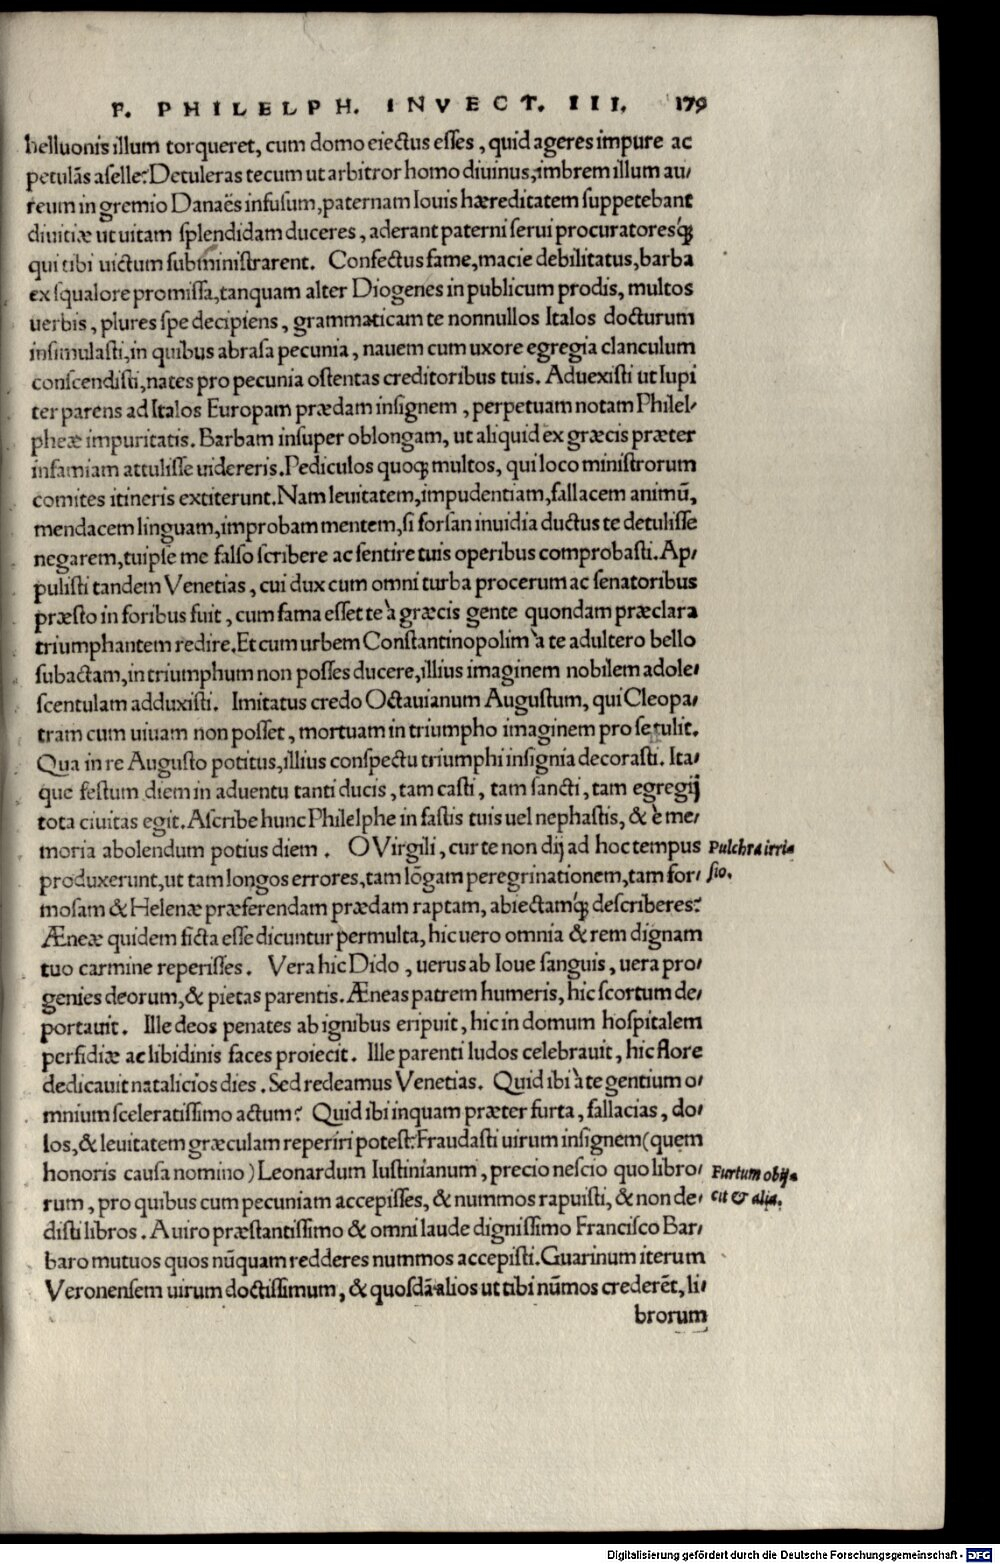 F. PHILELPH. INVECT. III. 179
helluonis illum torqueret, cum domo eiectus esses, quid ageres impure ac
petulãs aselle? Detuleras tecum ut arbitror homo diuinus, imbrem illum au/
reum in gremio Danaës infusum, paternam Iouis hæreditatem suppetebant
diuitiæ ut uitam splendidam duceres, aderant paterni serui procuratoresq́;
qui tibi uictum subministrarent. Confectus fame, macie debilitatus, barba
ex squalore promissa, tanquam alter Diogenes in publicum prodis, multos
uerbis, plures spe decipiens, grammaticam te nonnullos Italos docturum
insimulasti, in quibus abrasa pecunia, nauem cum uxore egregia clanculum
conscendisti, nates pro pecunia ostentas creditoribus tuis. Aduexisti ut Iupi
ter parens ad Italos Europam prædam insignem, perpetuam notam Philel/
pheæ impuritatis. Barbam insuper oblongam, ut aliquid ex græcis præter
infamiam attulisse uidereris. Pediculos quoq; multos, qui loco ministrorum
comites itineris extiterunt. Nam leuitatem, impudentiam, fallacem animũ,
mendacem linguam, improbam mentem, si forsan inuidia ductus te detulisse
negarem, tuipse me falso scribere ac sentire tuis operibus comprobasti. Ap/
pulisti tandem Venetias, cui dux cum omni turba procerum ac senatoribus
præsto in foribus fuit, cum fama esset te à græcis gente quondam præclara
triumphantem redire. Et cum urbem Constantinopolim à te adultero bello
subactam, in triumphum non posses ducere, illius imaginem nobilem adole/
scentulam adduxisti. Imitatus credo Octauianum Augustum, qui Cleopa/
tram cum uiuam non posset, mortuam in triumpho imaginem pro se tulit.
Qua in re Augusto potitus, illius conspectu triumphi insignia decorasti. Ita/
que festum diem in aduentu tanti ducis, tam casti, tam sancti, tam egregij
tota ciuitas egit. Ascribe hunc Philelphe in fastis tuis uel nephastis, & è me/
moria abolendum potius diem. O Virgili, cur te non dij ad hoc tempus
Pulchra irri=
produxerunt, ut tam longos errores, tam lõgam peregrinationem, tam for/
sio.
mosam & Helenæ præferendam prædam raptam, abiectamq́; describeres?
Æneæ quidem ficta esse dicuntur permulta, hic uero omnia & rem dignam
tuo carmine reperisses. Vera hic Dido, uerus ab Ioue sanguis, uera pro/
genies deorum, & pietas parentis. Æneas patrem humeris, hic scortum de/
portauit. Ille deos penates ab ignibus eripuit, hic in domum hospitalem
perfidiæ ac libidinis faces proiecit. Ille parenti ludos celebrauit, hic flore
dedicauit natalicios dies. Sed redeamus Venetias. Quid ibi à te gentium o/
mnium sceleratissimo actum? Quid ibi inquam præter furta, fallacias, do/
los, & leuitatem græculam reperiri potest? Fraudasti uirum insignem (quem
honoris causa nomino) Leonardum Iustinianum, precio nescio quo libro/
Furtum obij=
rum, pro quibus cum pecuniam accepisses, & nummos rapuisti, & non de/
cit & alia.
disti libros. A uiro præstantissimo & omni laude dignissimo Francisco Bar/
baro mutuos quos nũquam redderes nummos accepisti. Guarinum iterum
Veronensem uirum doctissimum, & quosdã alios ut tibi nũmos crederẽt, li/
brorum
Digitalisierung gefördert durch die Deutsche Forschungsgemeinschaft - DFG